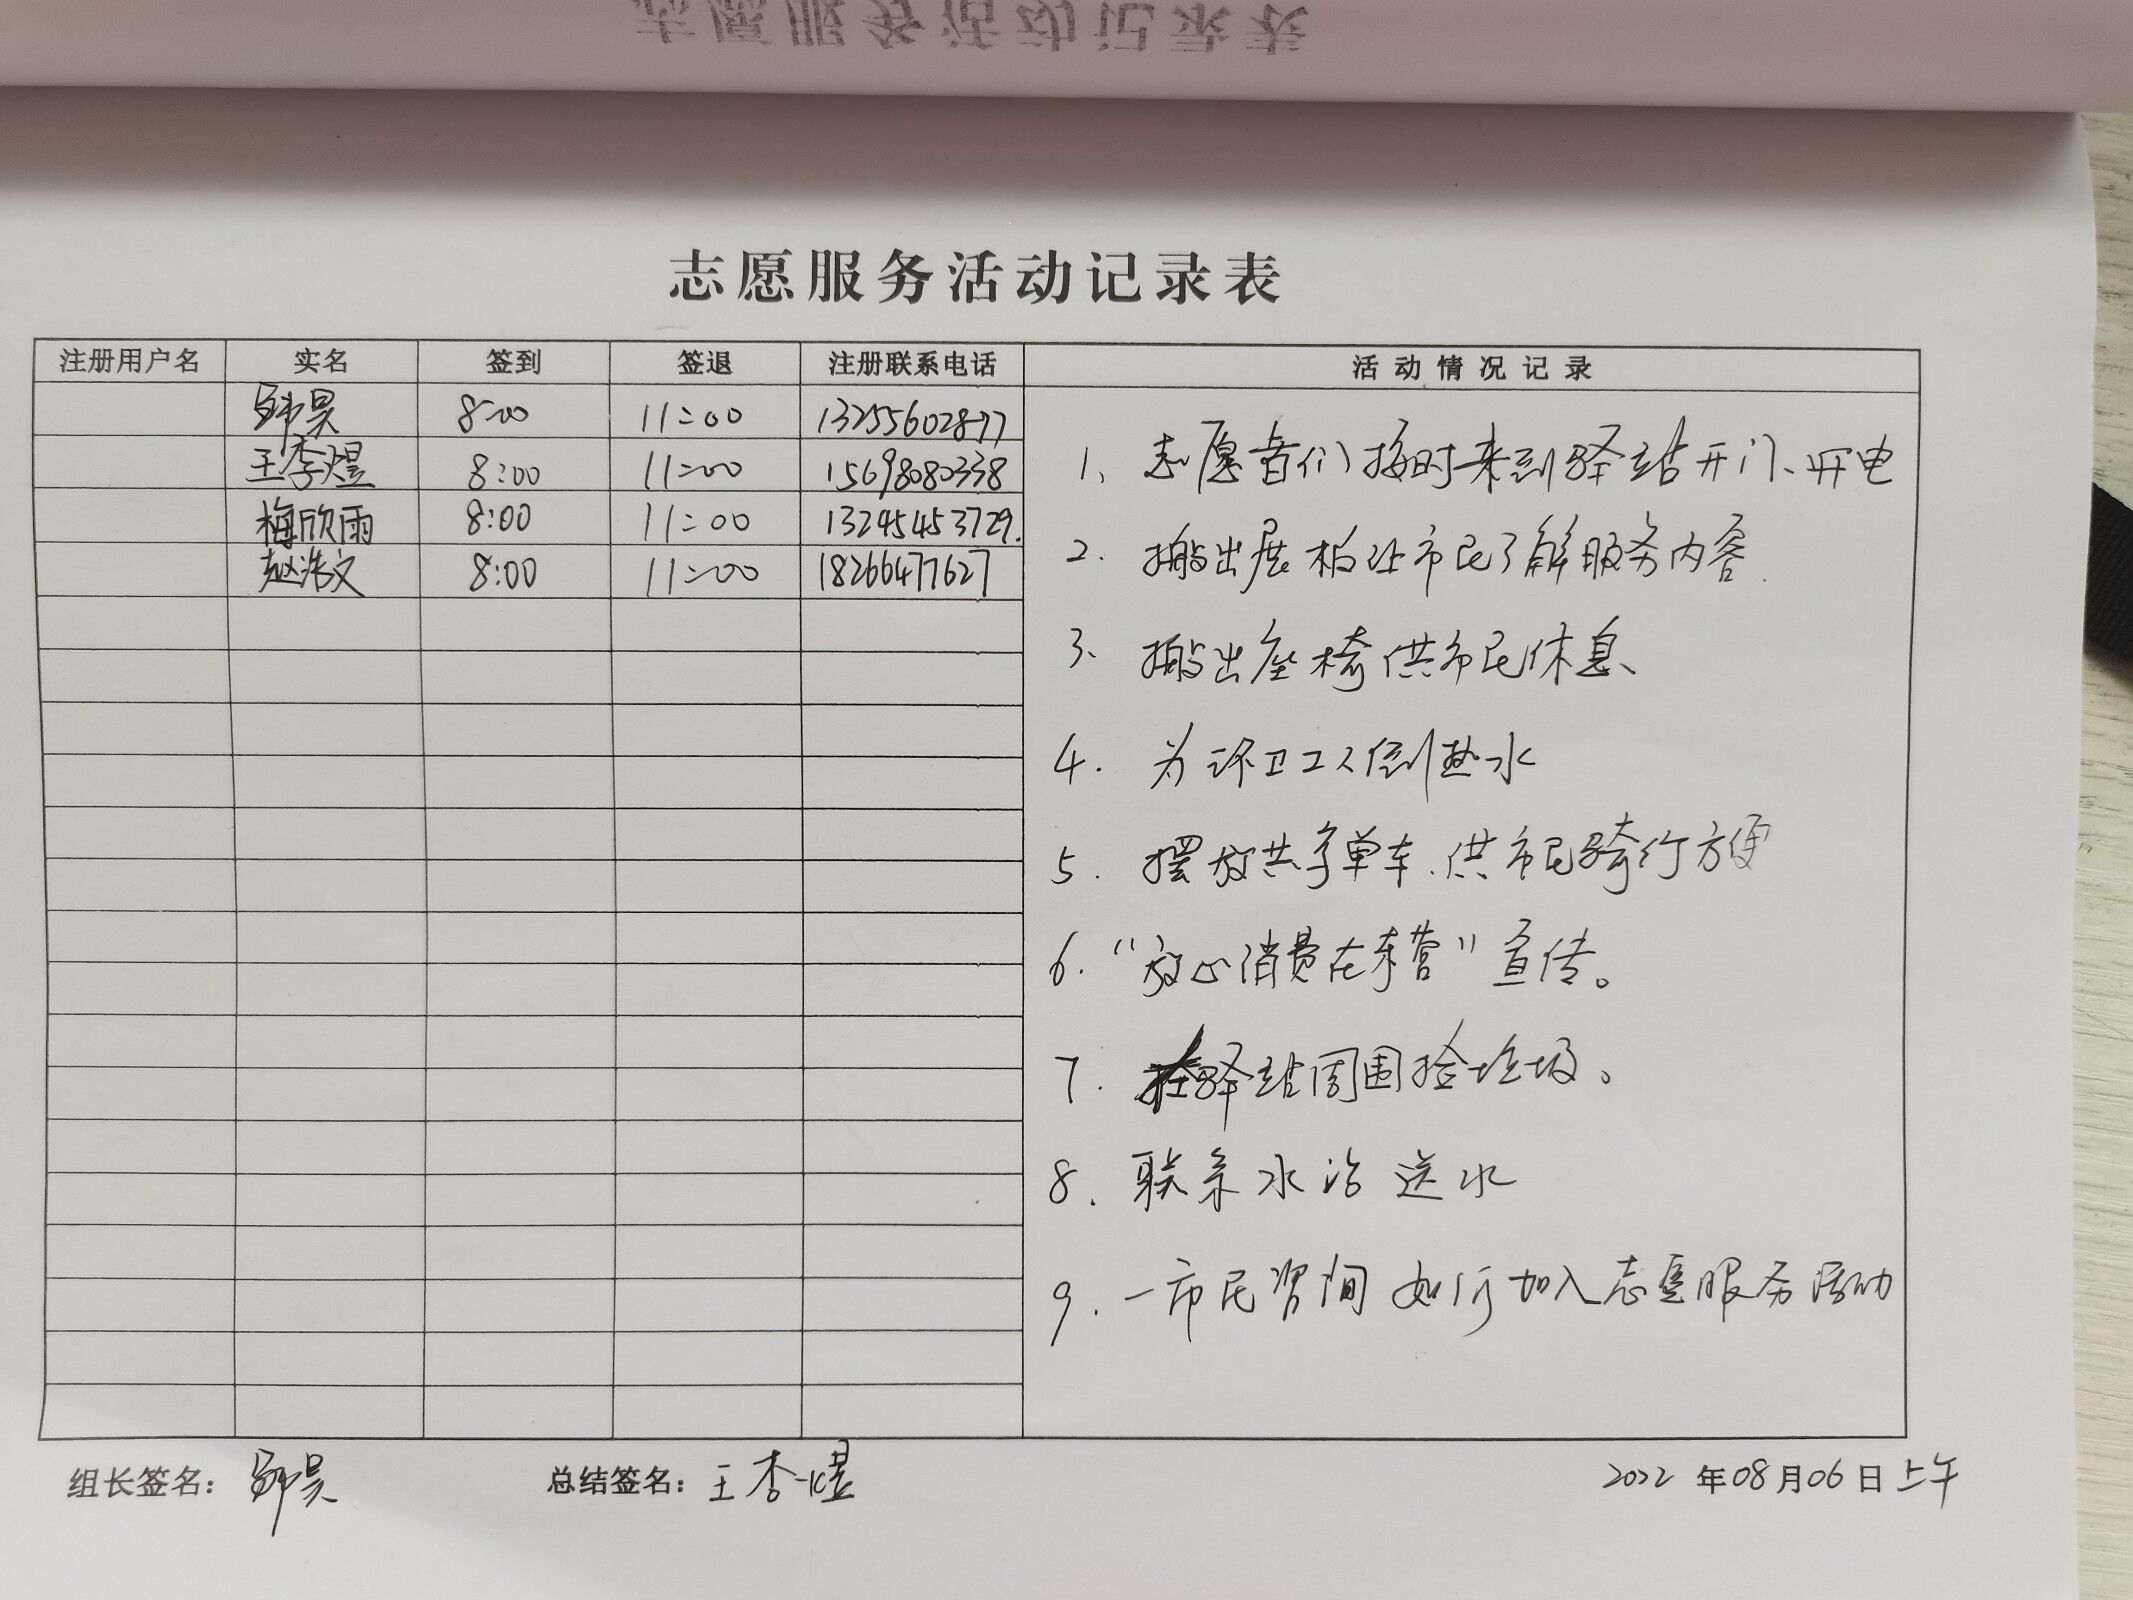 志愿服务活动记录表
志愿服务活动记录表
注册用户名 实名 签到 签退 注册联系电话 活动情况记录
昊 8:00 11:00 13255602877
王李煜 8:00 11:00 15698080338
梅欣雨 8:00 11:00 13245453729.
赵浩文 8:00 11:00 18266477627
1、志愿者们按时来到驿站开门、开电
2. 搬出展板让市民了解服务内容.
3、搬出座椅供市民休息、
4. 为环卫工人倒热水
5. 摆放共享单车.供市民骑行方便
6. “放心消费在东营”宣传。
7. 在驿站周围捡垃圾。
8. 联系水站送水
9. 一市民咨询如何加入志愿服务活动
组长签名: 昊 总结签名: 王李煜 2022年08月06日上午